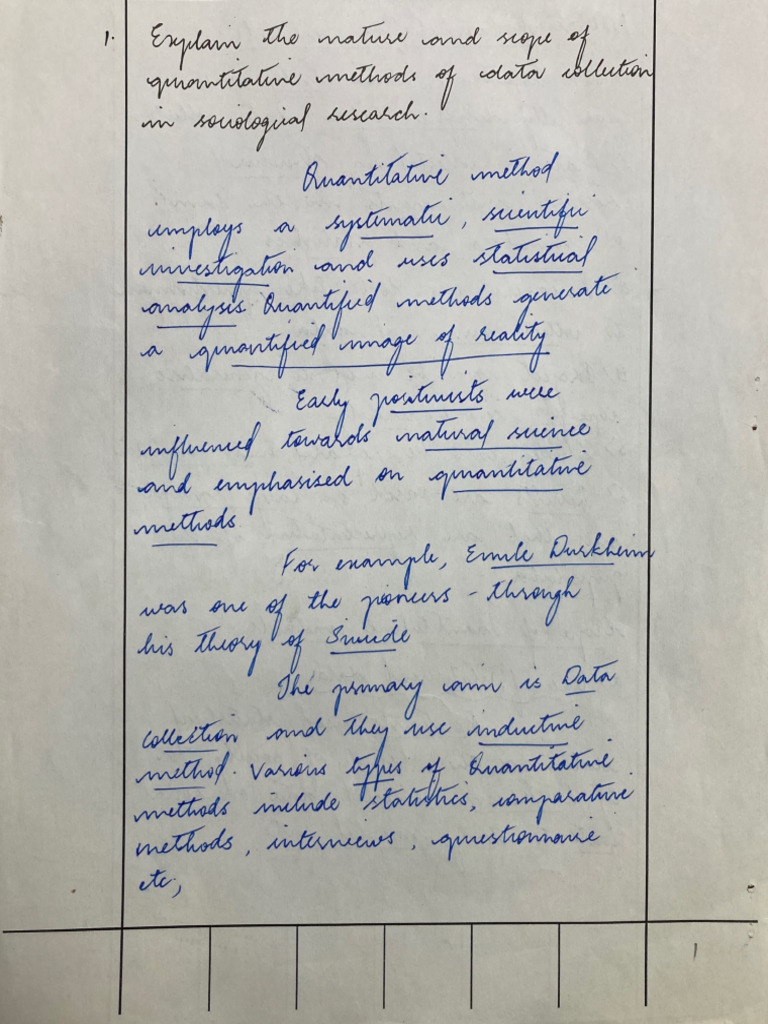 1. Explain the nature and scope of
quantitative methods of data collection
in sociological research.
Quantitative method
employs a systematic, scientific
investigation and uses statistical
analysis. Quantified methods generate
a quantified image of reality
Early positivists were
influenced towards natural science
and emphasised on quantitative
methods
For example, Emile Durkheim
was one of the pioneers - through
his theory of Suicide
The primary aim is Data
collection and they use inductive
method. Various types of Quantitative
methods include statistics, comparative
methods, interviews, questionnaire
etc,
1